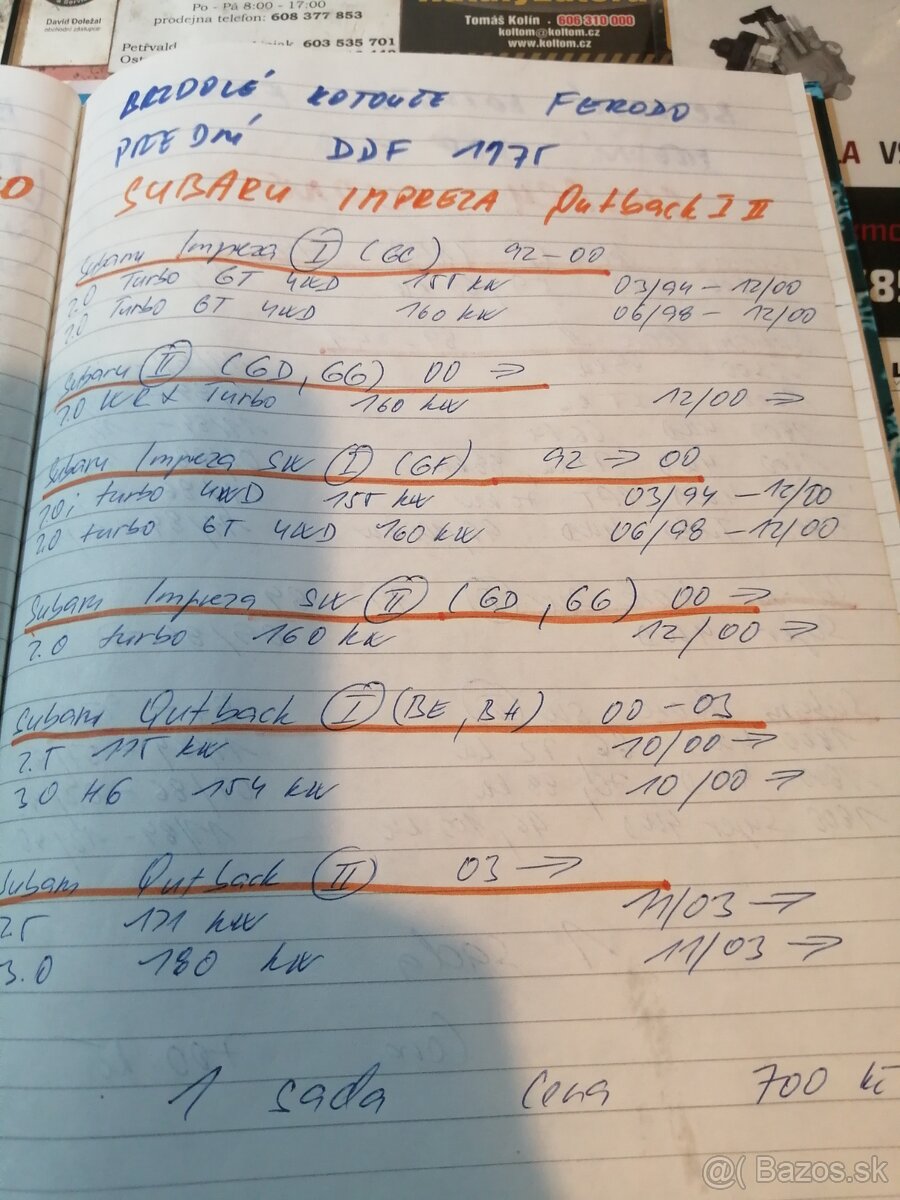 David Doležal
obchodní zástupce
Po - Pá 8:00 - 17:00
prodejna telefon: 608 377 853
Petřvald
603 535 701
Tomáš Kolín 606 310 000
koltom@koltom.cz
www.koltom.cz
BRZDOVÉ KOTOUČE FERODO
PŘEDNÍ DDF 1975
SUBARU IMPREZA Outback I II
Subaru Impreza I (GC) 92-00
2.0 Turbo GT 4WD 155 kW 03/94 - 12/00
2.0 Turbo GT 4WD 160 kW 06/98 - 12/00
Subaru II (GD, GG) 00 →
2.0 WRX Turbo 160 kW 12/00 →
Subaru Impreza SW I (GF) 92 → 00
2.0i turbo 4WD 155 kW 03/94 - 12/00
2.0 turbo GT 4WD 160 kW 06/98 - 12/00
Subaru Impreza SW II (GD, GG) 00 →
2.0 turbo 160 kW 12/00 →
Subaru Outback I (BE, BH) 00 - 03
2.5 115 kW 10/00 →
3.0 H6 154 kW 10/00 →
Subaru Outback II 03 →
2.5 121 kW 11/03 →
3.0 180 kW 11/03 →
1 sada cena 700 Kč
@( Bazos.sk